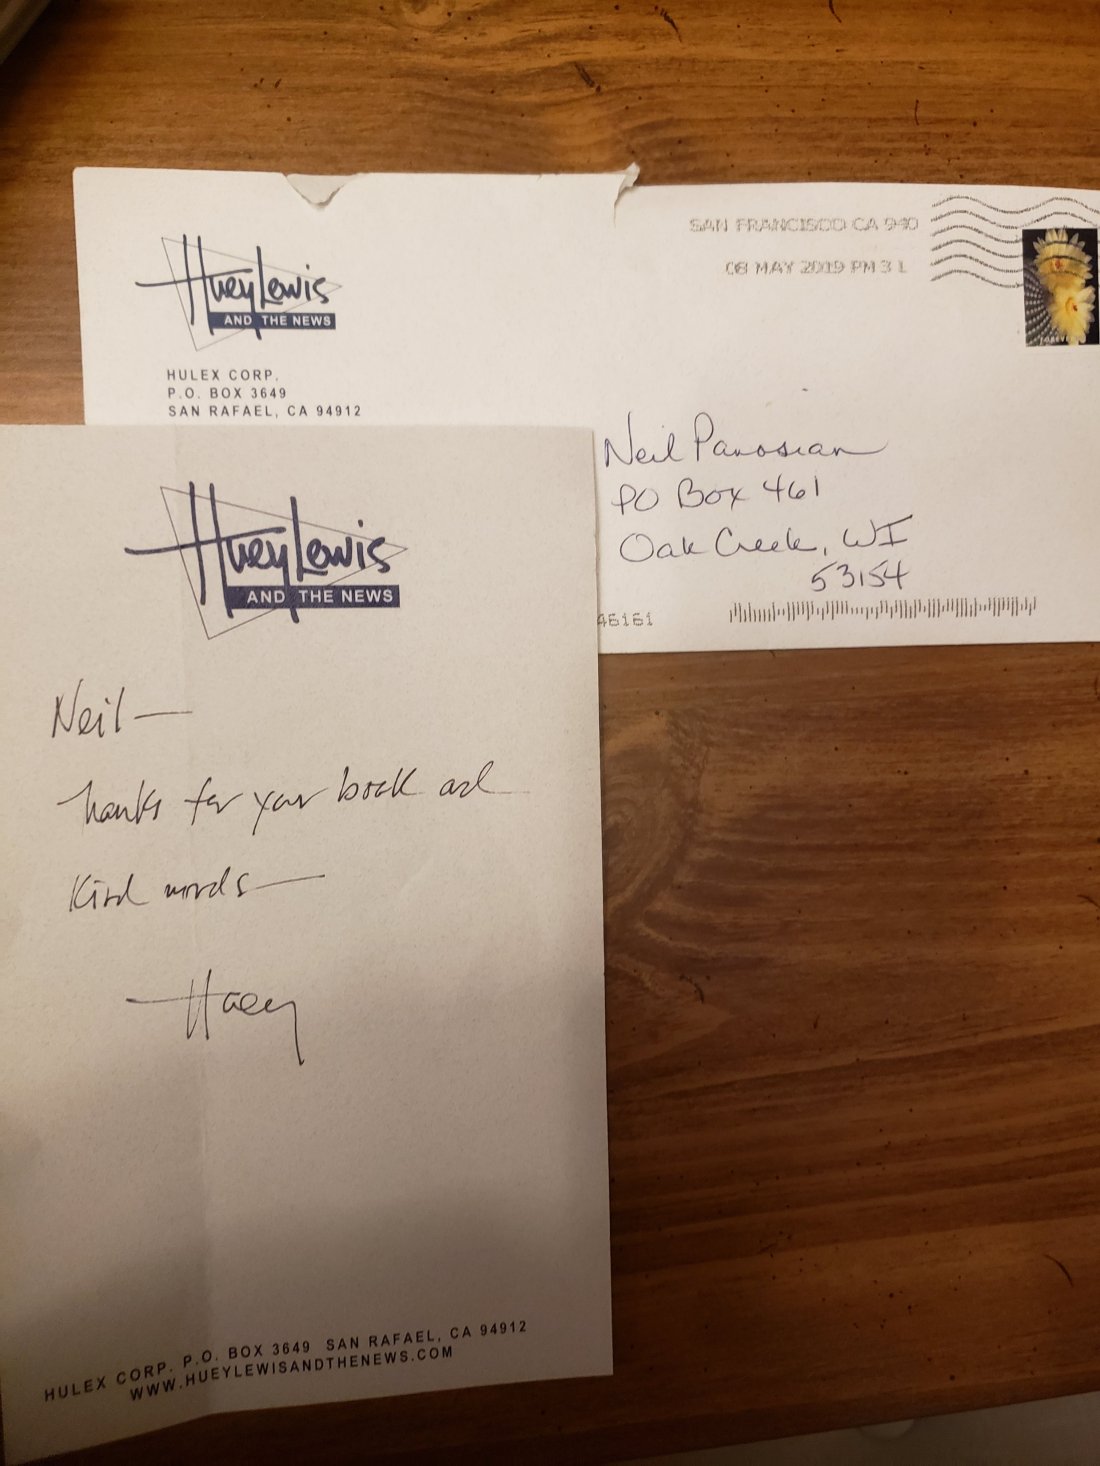 SAN FRANCISCO CA 940
08 MAY 2019 PM 3 L
FOREVER
Huey Lewis
AND THE NEWS
HULEX CORP.
P.O. BOX 3649
SAN RAFAEL, CA 94912
Neil Panosian
PO Box 461
Oak Creek, WI
53154
46161
Huey Lewis
AND THE NEWS
Neil—
Thanks for your book and
Kind words—
Huey
HULEX CORP. P.O. BOX 3649 SAN RAFAEL, CA 94912
WWW.HUEYLEWISANDTHENEWS.COM